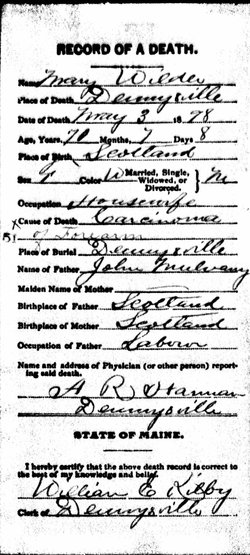 RECORD OF A DEATH.
Name Mary Wilder
Place of Death, Dennysville
Date of Death May 3 1878
Age, Years, 70 Months, 7 Days 8
Place of Birth, Scotland
Sex F Color W Married, Single, Widowed, or Divorced. } M
Occupation Housewife
Cause of Death Carcinoma
of Forearm
Place of Burial Dennysville
Name of Father John Mulvany
Maiden Name of Mother
Birthplace of Father Scotland
Birthplace of Mother Scotland
Occupation of Father Laborer
Name and address of Physician (or other person) report-
ing said death.
A R
Dennysville
STATE OF MAINE.
I hereby certify that the above death record is correct to
the best of my knowledge and belief.
William E Kilby
Clerk of Dennysville